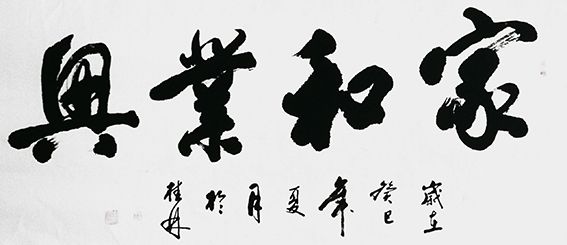 家和業興
歲在癸巳年夏月於桂林